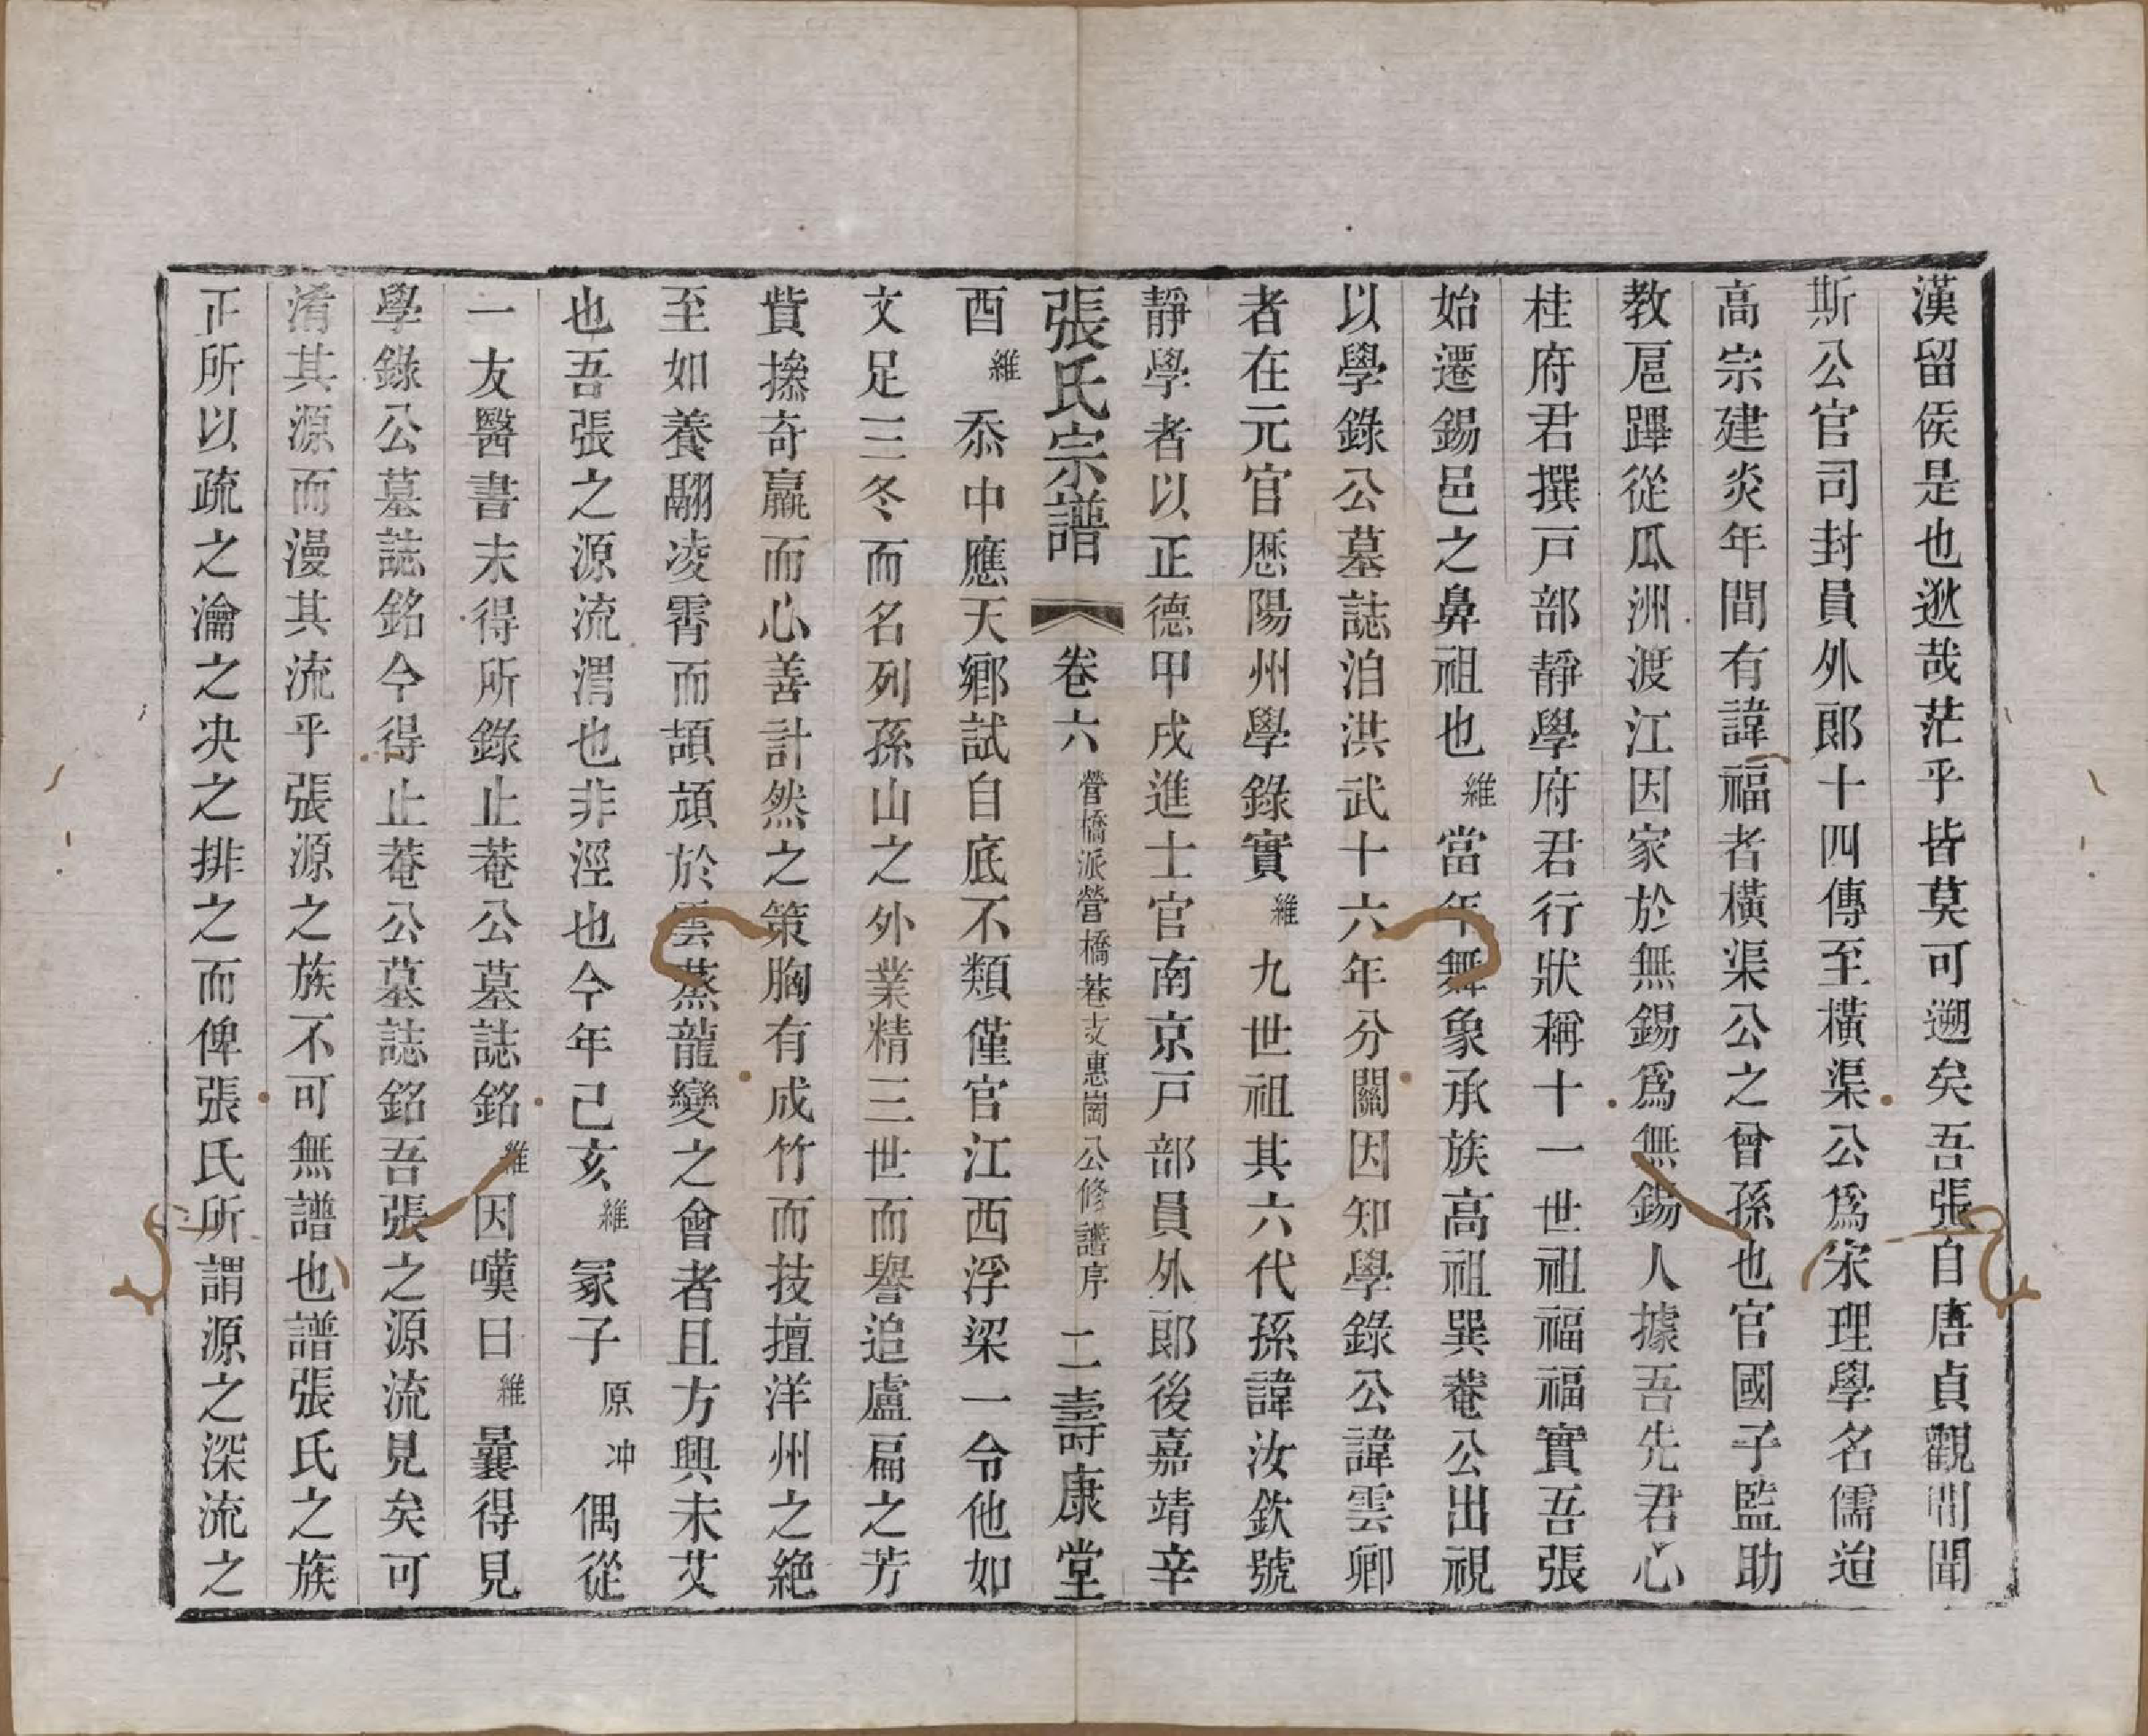 漢留侯是也逖哉茫乎皆莫可遡矣吾張自唐貞觀間聞
斯公官司封員外郎十四傳至橫渠公爲宋理學名儒迨
高宗建炎年間有諱福者橫渠公之曾孫也官國子監助
教扈蹕從瓜洲渡江因家於無錫爲無錫人據吾先君心
桂府君撰戸部靜學府君行狀稱十一世祖福福實吾張
始遷錫邑之鼻祖也維當年舞象承族高祖巽菴公出視
以學錄公墓誌洎洪武十六年分關因知學錄公諱雲卿
者在元官歷陽州學錄實維九世祖其六代孫諱汝欽號
靜學者以正德甲戌進士官南京戸部員外郎後嘉靖辛
張氏宗譜 卷六 營橋派營橋巷支惠崗公修譜序 二 壽康堂
酉維忝中應天鄉試自底不類僅官江西浮梁一令他如
文足三冬而名列孫山之外業精三世而譽追盧扁之芳
貲摻奇贏而心善計然之策胸有成竹而技擅洋州之絶
至如養翮凌霄而頡頏於雲蒸龍變之會者且方興未艾
也吾張之源流渭也非涇也今年己亥維冢子原冲偶從
一友醫書末得所錄止菴公墓誌銘維因嘆曰維曩得見
學錄公墓誌銘今得止菴公墓誌銘吾張之源流見矣可
淆其源而漫其流乎張源之族不可無譜也譜張氏之族
正所以疏之瀹之决之排之而俾張氏所謂源之深流之